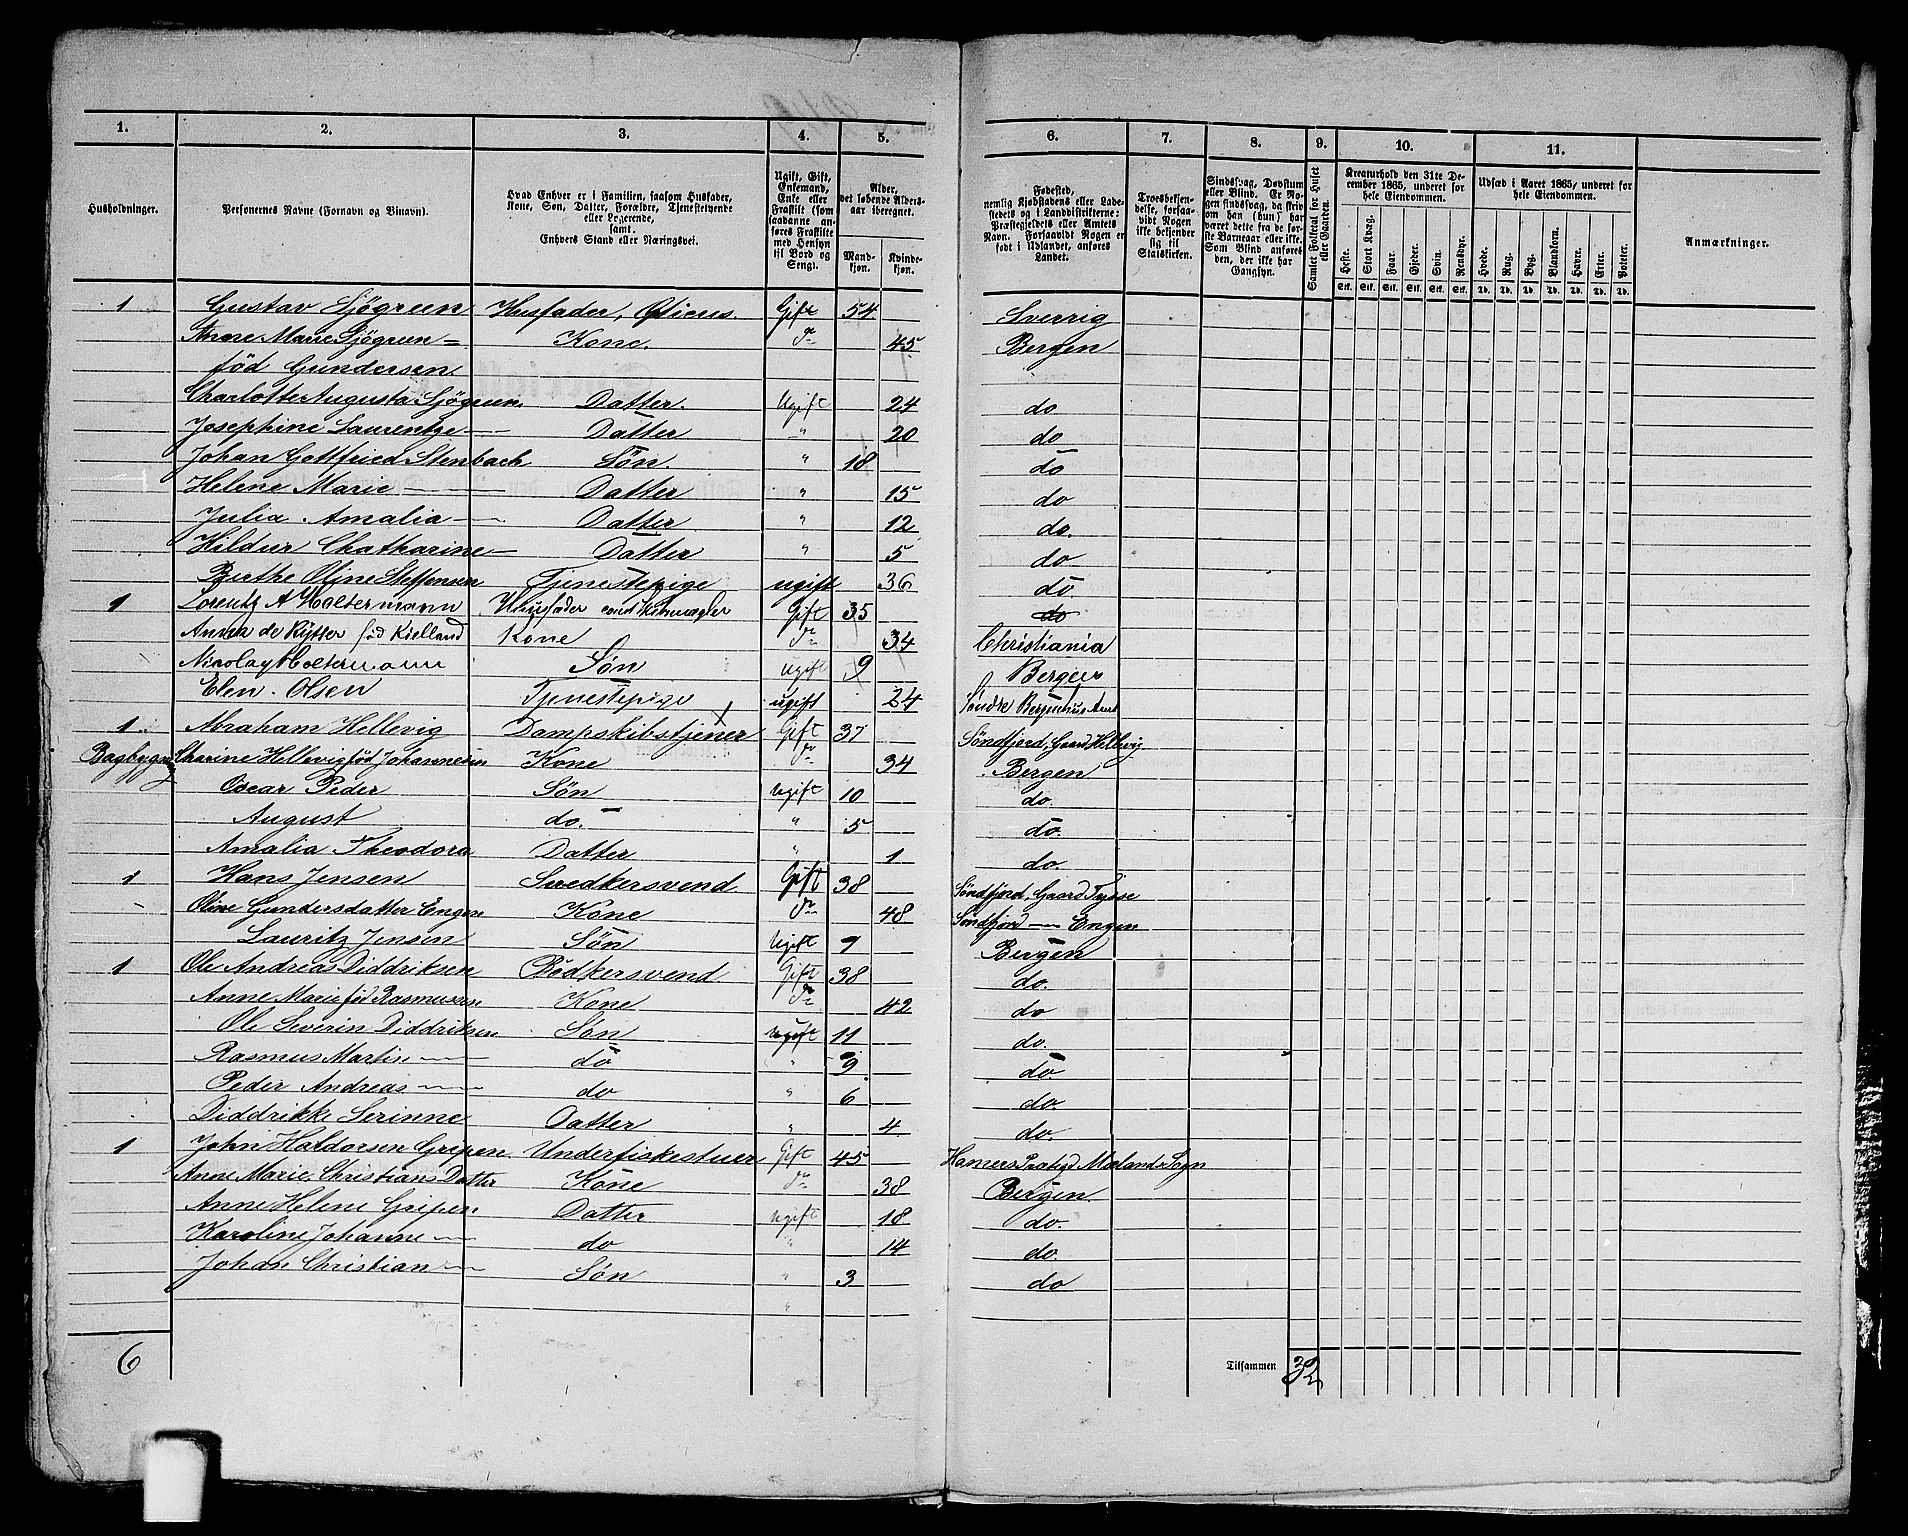 1. 2. 3. 4. 5. 6. 7. 8. 9. 10. 11.
Husholdninger.
Personernes Navne (Fornavn og Tilnavn).
Hvad Enhver er i Familien, saasom Husfader, Kone, Søn, Datter, Forældre, Tjenestetyende eller Logerende, samt Enhvers Stand eller Næringsvei.
Ugift, Gift, Enkemand, Enke eller Fraskilt (som saadanne anføres Fraskilte med Hensyn til Bord og Seng).
Alder, det løbende Alders-aar iberegnet.
Mand-kjøn. Kvinde-kjøn.
Fødested, nemlig Kjøbstadens eller Ladestedets og i Landdistrikterne: Præstegjeldets eller Amtets Navn. Forsaavidt Nogen er født i Udlandet, anføres Landet.
Troesbekjendelse, forsaavidt Nogen ikke bekjender sig til Statskirken.
Sindssvag, Døvstum eller Blind. Er Nogen sindssvag, da skrives om han (hun) har været dette fra de første Barneaar eller ikke. Som Blind anføres den, der ikke har Gangsyn.
Samlet Folketal for Huset eller Gaarden.
Kreaturhold den 31te December 1865, underet for hele Eiendommen.
Heste. Stort Kvæg. Faar. Gjeder. Svin. Rensdyr.
Udsæd i Aaret 1865, underet for hele Eiendommen.
Hvede. Rug. Byg. Blandkorn. Havre. Erter. Poteter.
Anmærkninger.
Stk. Stk. Stk. Stk. Stk. Stk. Td. Td. Td. Td. Td. Td. Td.
1 Gustav Sjögreen Husfader, Opticus Gift 54 Sverrig
Anne Marie Sjögreen = Kone. do 45 Bergen
föd Gundersen
Charlotte Augusta Sjögreen Datter. Ugift 24 do
Josephine Laurentze — Datter " 20 do
Johan Gottfried Stenbach Søn. " 18 do
Helene Marie — Datter " 15 do
Julia Amalia — Datter " 12 do.
Hildur Chatharine — Datter " 5 do
Berthe Oline Steffensen Tjenestepige ugift 36 do
1 Lorentz A Holtermann Huusfader Gift 35 do
Anna de Rytter föd Kielland Kone do 34 Christiania
Nicolay Holtermann Søn Ugift 9 Bergen
Elen Olsen Tjenestepige ugift 24 Søndre Bergenhus Amt
1 Abraham Hellevig Dampskibstjener Gift 37 Søndfjord, Gaard Hellevig
Bagbygn Charine Hellevig föd Johannesen Kone do 34 Bergen
Oscar Peder Søn Ugift 10 do.
August do. " 5 do.
Amalia Theodora Datter " 1 do.
1 Hans Jensen Smedkersvend Gift 38 Søndfjord, Gaard Tysse
Oline Gundersdatter Engen Kone do 48 Søndfjord — Engen
Lauritz Jensen Søn Ugift 7 Bergen
1 Ole Andreas Diddriksen Bødkersvend Gift 38 do.
Anne Marie föd Rasmussen Kone do 42 do
Ole Severin Diddriksen Søn Ugift 11 do.
Rasmus Martin — do " 9 do.
Peder Andreas — do " 6 do.
Diddrikke Serinne Datter " 4 do.
1 John Haldorsen Gripen Underfiskestuer Gift 45 Hamers Præstgd Mælands Sogn
Anne Marie Christians Datter Kone do 38 Bergen
Anne Helene Gripen Datter Ugift 18 do.
Karoline Johanne — do " 14 do.
Johan Christian — Søn " 3 do
"
6 Tilsammen 32